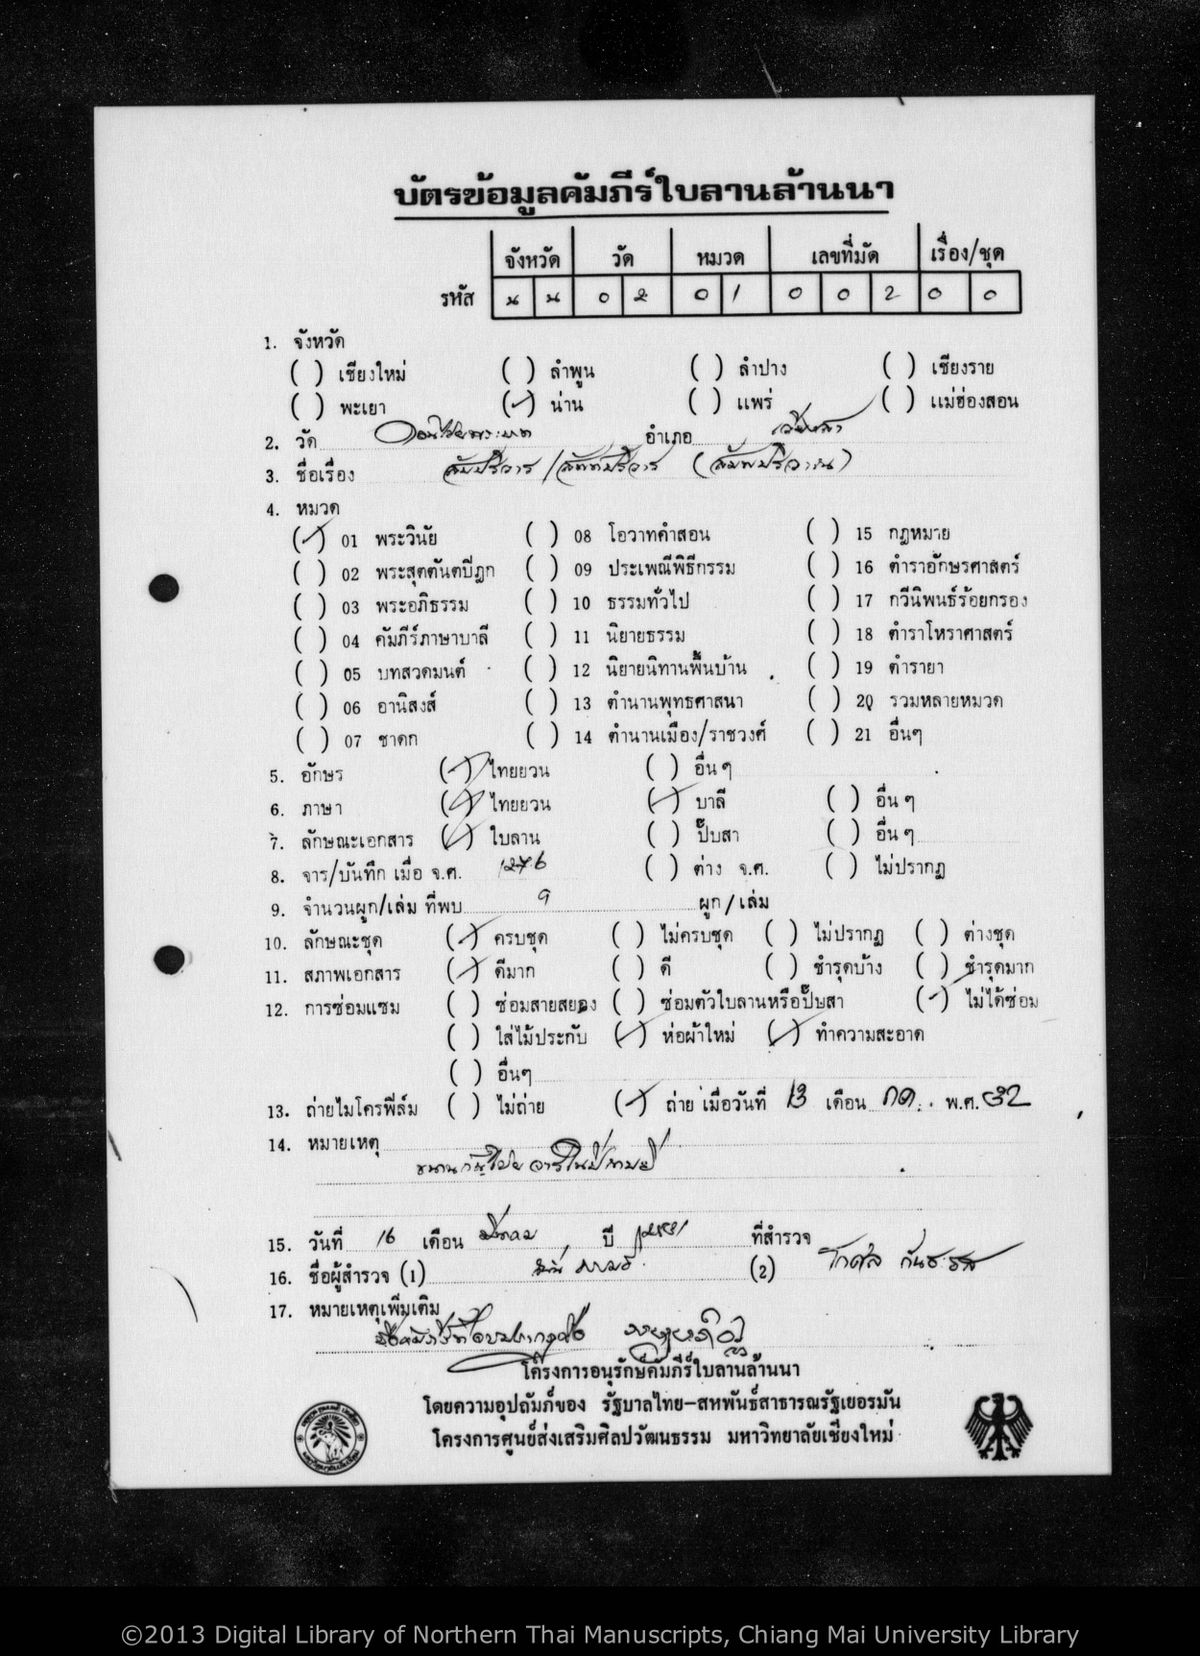 บัตรข้อมูลคัมภีร์ใบลานล้านนา
จังหวัด วัด หมวด เลขที่มัด เรื่อง/ชุด
รหัส น น 0 2 0 1 0 0 2 0 0
1. จังหวัด
( ) เชียงใหม่ ( ) ลำพูน ( ) ลำปาง ( ) เชียงราย
( ) พะเยา (✓) น่าน ( ) แพร่ ( ) แม่ฮ่องสอน
2. วัด อำเภอ เวียงสา
3. ชื่อเรื่อง
4. หมวด
(✓) 01 พระวินัย ( ) 08 โอวาทคำสอน ( ) 15 กฎหมาย
( ) 02 พระสุตตันตปิฎก ( ) 09 ประเพณีพิธีกรรม ( ) 16 ตำราอักษรศาสตร์
( ) 03 พระอภิธรรม ( ) 10 ธรรมทั่วไป ( ) 17 กวีนิพนธ์ร้อยกรอง
( ) 04 คัมภีร์ภาษาบาลี ( ) 11 นิยายธรรม ( ) 18 ตำราโหราศาสตร์
( ) 05 บทสวดมนต์ ( ) 12 นิยายนิทานพื้นบ้าน ( ) 19 ตำรายา
( ) 06 อานิสงส์ ( ) 13 ตำนานพุทธศาสนา ( ) 20 รวมหลายหมวด
( ) 07 ชาดก ( ) 14 ตำนานเมือง/ราชวงศ์ ( ) 21 อื่นๆ
5. อักษร (✓) ไทยยวน ( ) อื่นๆ
6. ภาษา (✓) ไทยยวน (✓) บาลี ( ) อื่นๆ
7. ลักษณะเอกสาร (✓) ใบลาน ( ) ปั๊บสา ( ) อื่นๆ
8. จาร/บันทึก เมื่อ จ.ศ. ( ) ต่าง จ.ศ. ( ) ไม่ปรากฏ
9. จำนวนผูก/เล่ม ที่พบ 9 ผูก/เล่ม
10. ลักษณะชุด (✓) ครบชุด ( ) ไม่ครบชุด ( ) ไม่ปรากฏ ( ) ต่างชุด
11. สภาพเอกสาร (✓) ดีมาก ( ) ดี ( ) ชำรุดบ้าง ( ) ชำรุดมาก
12. การซ่อมแซม ( ) ซ่อมสายสยอง ( ) ซ่อมตัวใบลานหรือปั๊บสา (✓) ไม่ได้ซ่อม
( ) ใส่ไม้ประกับ (✓) ห่อผ้าใหม่ (✓) ทำความสะอาด
( ) อื่นๆ
13. ถ่ายไมโครฟิล์ม ( ) ไม่ถ่าย (✓) ถ่าย เมื่อวันที่ 13 เดือน กค. พ.ศ. 32
14. หมายเหตุ
15. วันที่ 16 เดือน ปี ที่สำรวจ
16. ชื่อผู้สำรวจ (1) (2)
17. หมายเหตุเพิ่มเติม
โครงการอนุรักษ์คัมภีร์ใบลานล้านนา
โดยความอุปถัมภ์ของ รัฐบาลไทย-สหพันธ์สาธารณรัฐเยอรมัน
โครงการศูนย์ส่งเสริมศิลปวัฒนธรรม มหาวิทยาลัยเชียงใหม่
©2013 Digital Library of Northern Thai Manuscripts, Chiang Mai University Library